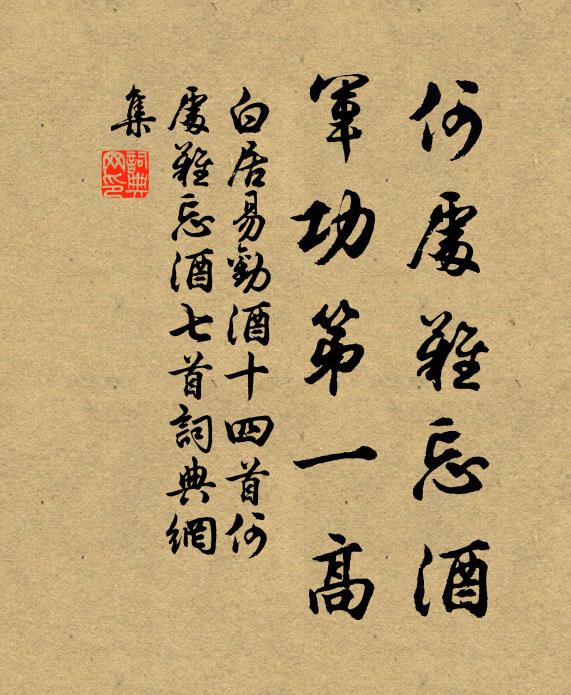 何處難忘酒
軍功第一高
白居易勸酒十四首何
處難忘酒七首詞典網
集
詞典
网印